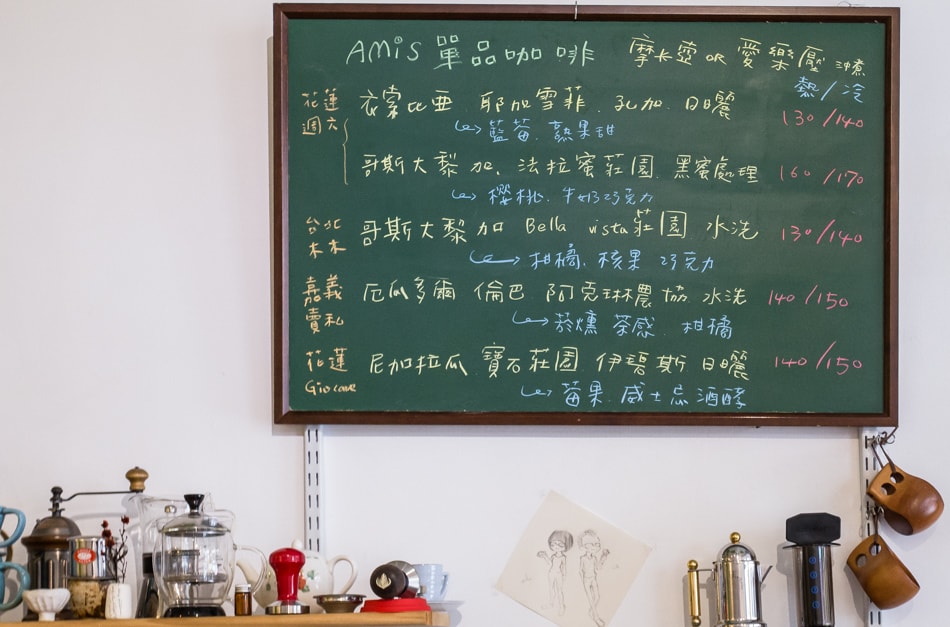 AMiS 單品咖啡 摩卡壺 or 愛樂壓 沖煮
熱/冷
花蓮 週六
衣索比亞 耶加雪菲 孔加 日曬 130/140
藍莓、熱果甜
哥斯大黎加、法拉蜜莊園 黑蜜處理 160/170
櫻桃、牛奶巧克力
台北 木木
哥斯大黎加 Bella vista莊園 水洗 130/140
柑橘、核果 巧克力
嘉義 賣私
厄瓜多爾 倫巴 阿克琳農協 水洗 140/150
菸燻 茶感 柑橘
花蓮 Giocare
尼加拉瓜 寶石莊園 伊碧斯 日曬 140/150
莓果、威士忌 酒酵